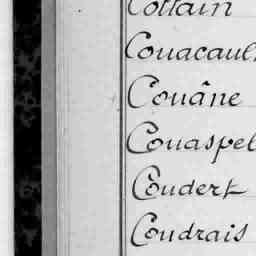 Cottain
Couacaul
Couâne
Couaspel
Coudert
Coudrais